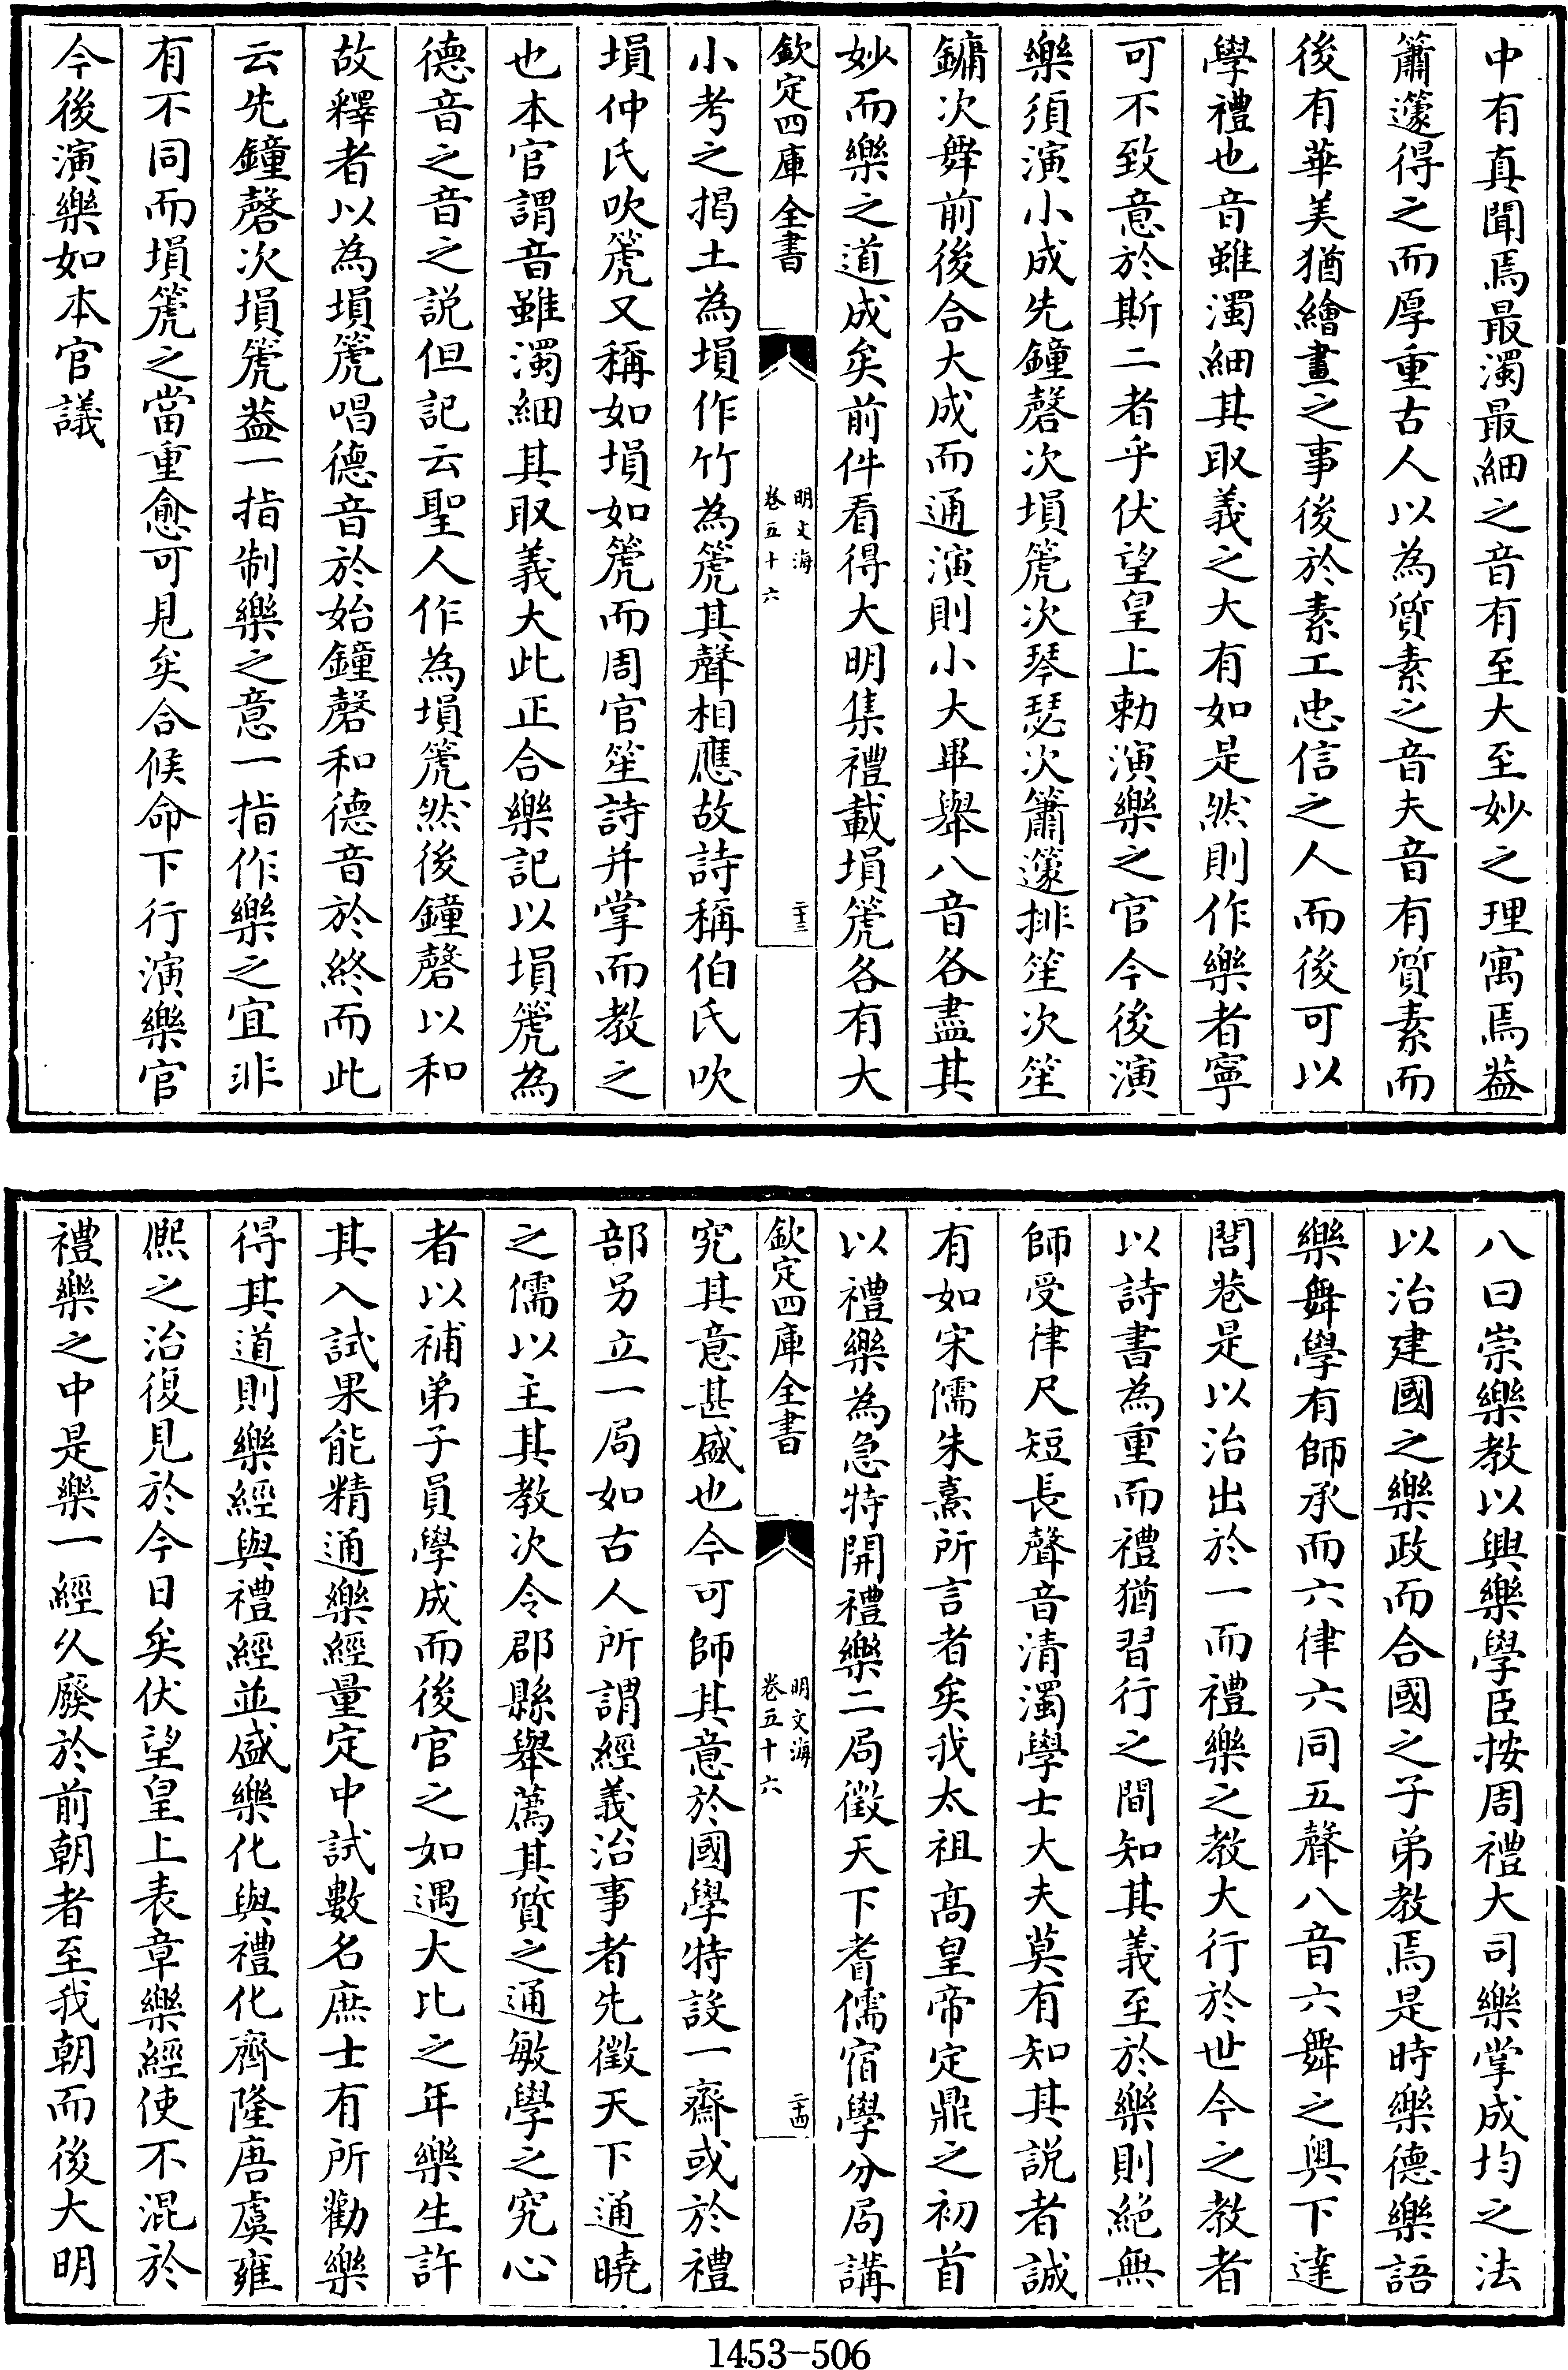 中有真聞焉最濁最細之音有至大至妙之理寓焉葢
簫籧得之而厚重古人以為質素之音夫音有質素而
後有華美猶繪畫之事後於素工忠信之人而後可以
學禮也音雖濁細其取義之大有如是然則作樂者寧
可不致意於斯二者乎伏望皇上勅演樂之官今後演
樂須演小成先鐘磬次塤箎次琴瑟次簫籧排笙次笙
鏞次舞前後合大成而通演則小大畢舉八音各盡其
妙而樂之道成矣前件看得大明集禮載塤箎各有大
欽定四庫全書
明文海
卷五十六
二十三
小考之揭土為塤作竹為箎其聲相應故詩稱伯氏吹
塤仲氏吹箎又稱如塤如箎而周官笙詩并掌而教之
也本官謂音雖濁細其取義大此正合樂記以塤箎為
德音之音之説但記云聖人作為塤箎然後鐘磬以和
故釋者以為塤箎唱德音於始鐘磬和德音於終而此
云先鐘磬次塤箎葢一指制樂之意一指作樂之宜非
有不同而塤箎之當重愈可見矣合候命下行演樂官
今後演樂如本官議
八曰崇樂教以興樂學臣按周禮大司樂掌成均之法
以治建國之樂政而合國之子弟教焉是時樂德樂語
樂舞學有師承而六律六同五聲八音六舞之奥下達
閭巷是以治出於一而禮樂之教大行於世今之教者
以詩書為重而禮猶習行之間知其義至於樂則絕無
師受律尺短長聲音清濁學士大夫莫有知其説者誠
有如宋儒朱熹所言者矣我太祖髙皇帝定鼎之初首
以禮樂為急特開禮樂二局徵天下耆儒宿學分局講
欽定四庫全書
明文海
卷五十六
二十四
究其意甚盛也今可師其意於國學特設一齋或於禮
部另立一局如古人所謂經義治事者先徵天下通曉
之儒以主其教次令郡縣舉薦其質之通敏學之究心
者以補弟子員學成而後官之如遇大比之年樂生許
其入試果能精通樂經量定中試數名庶士有所勸樂
得其道則樂經與禮經並盛樂化與禮化齊隆唐虞雍
熙之治復見於今日矣伏望皇上表章樂經使不混於
禮樂之中是樂一經久廢於前朝者至我朝而後大明
1453-506